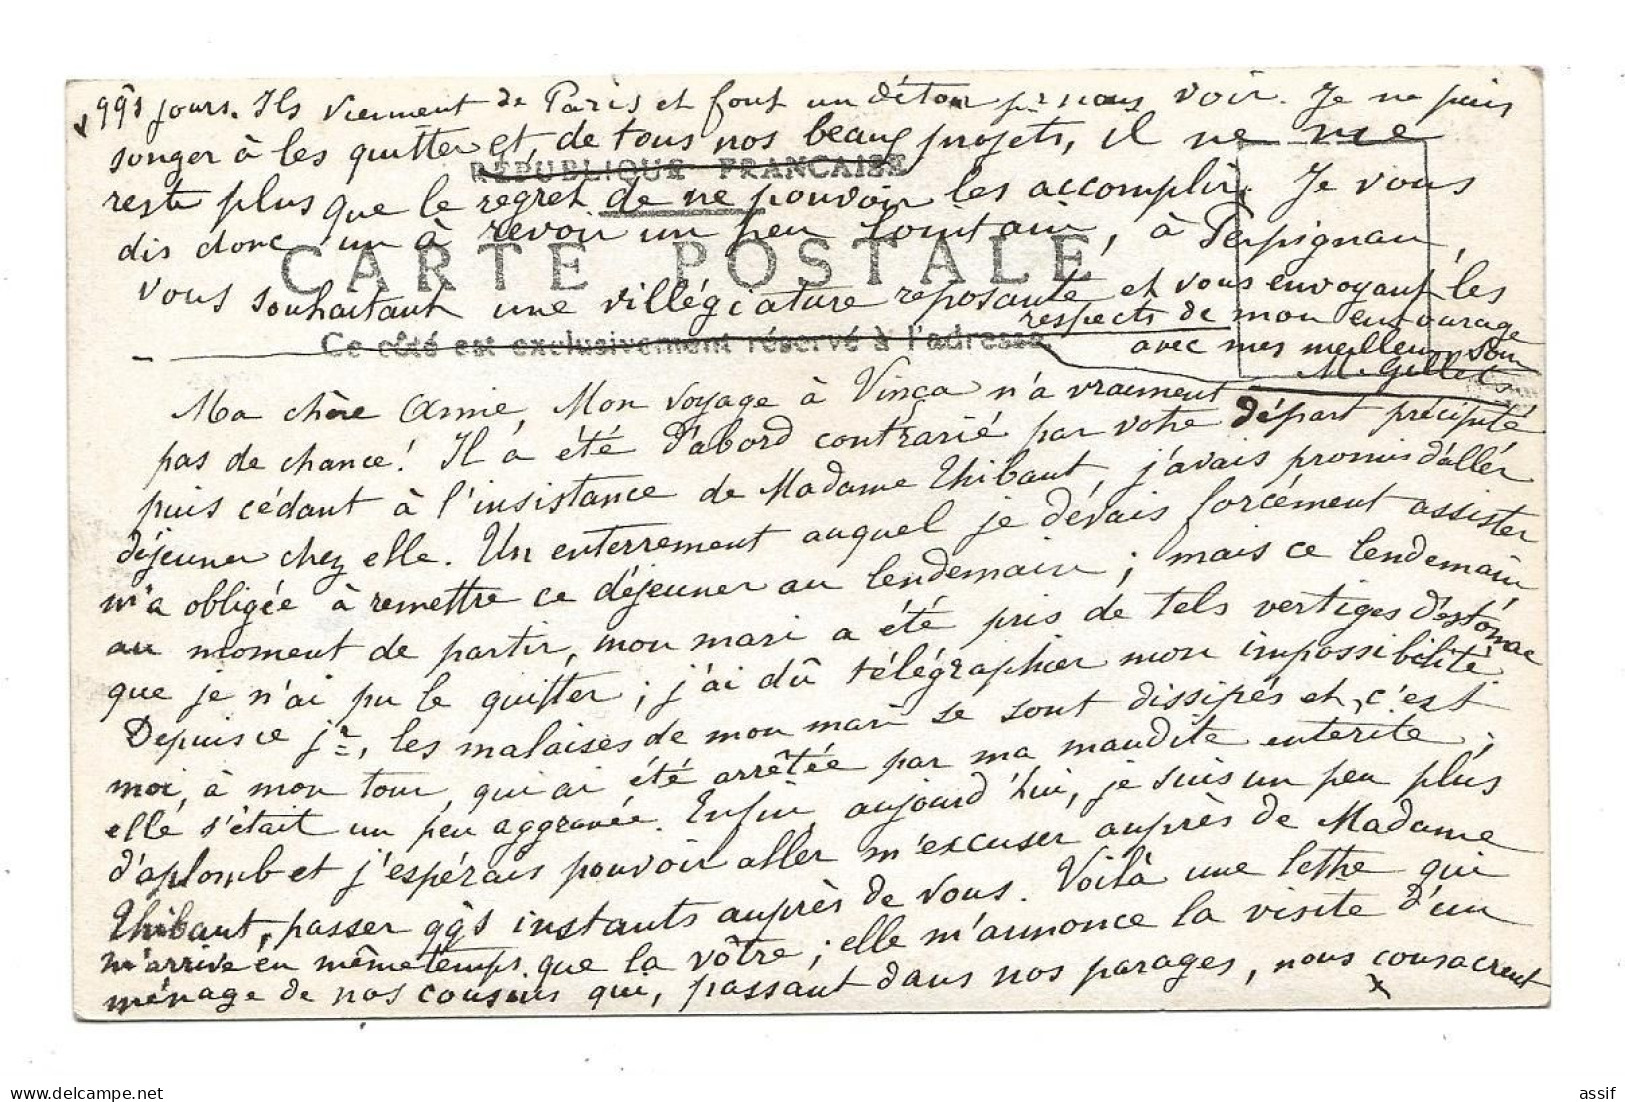 qqs jours. Ils viennent de Paris et font un détour pr nous voir. Je ne puis
songer à les quitter et, de tous nos beaux projets, il ne me
RÉPUBLIQUE FRANÇAISE
reste plus que le regret de ne pouvoir les accomplir. Je vous
dis donc un à revoir un peu lointain, à Perpignan,
CARTE POSTALE
vous souhaitant une villégiature reposante et vous envoyant les
respects de mon entourage
Ce côté est exclusivement réservé à l'adresse
avec mes meilleurs souv
M. Gillet
Ma chère Amie, Mon voyage à Vinça n'a vraiment
pas de chance! Il a été d'abord contrarié par votre départ précipité
puis cédant à l'insistance de Madame Thibaut, j'avais promis d'aller
déjeuner chez elle. Un enterrement auquel je devais forcément assister
m'a obligée à remettre ce déjeuner au lendemain; mais ce lendemain
au moment de partir, mon mari a été pris de tels vertiges d'estomac
que je n'ai pu le quitter; j'ai dû télégraphier mon impossibilité
Depuis ce jr, les malaises de mon mari se sont dissipés et, c'est
moi, à mon tour, qui ai été arrêtée par ma maudite entérite;
elle s'était un peu aggravée. Enfin, aujourd'hui, je suis un peu plus
d'aplomb et j'espérais pouvoir aller m'excuser auprès de Madame
Thibaut, passer qqs instants auprès de vous. Voilà une lettre qui
m'arrive en même temps que la vôtre; elle m'annonce la visite d'un
ménage de nos cousins qui, passant dans nos parages, nous consacrent
assif